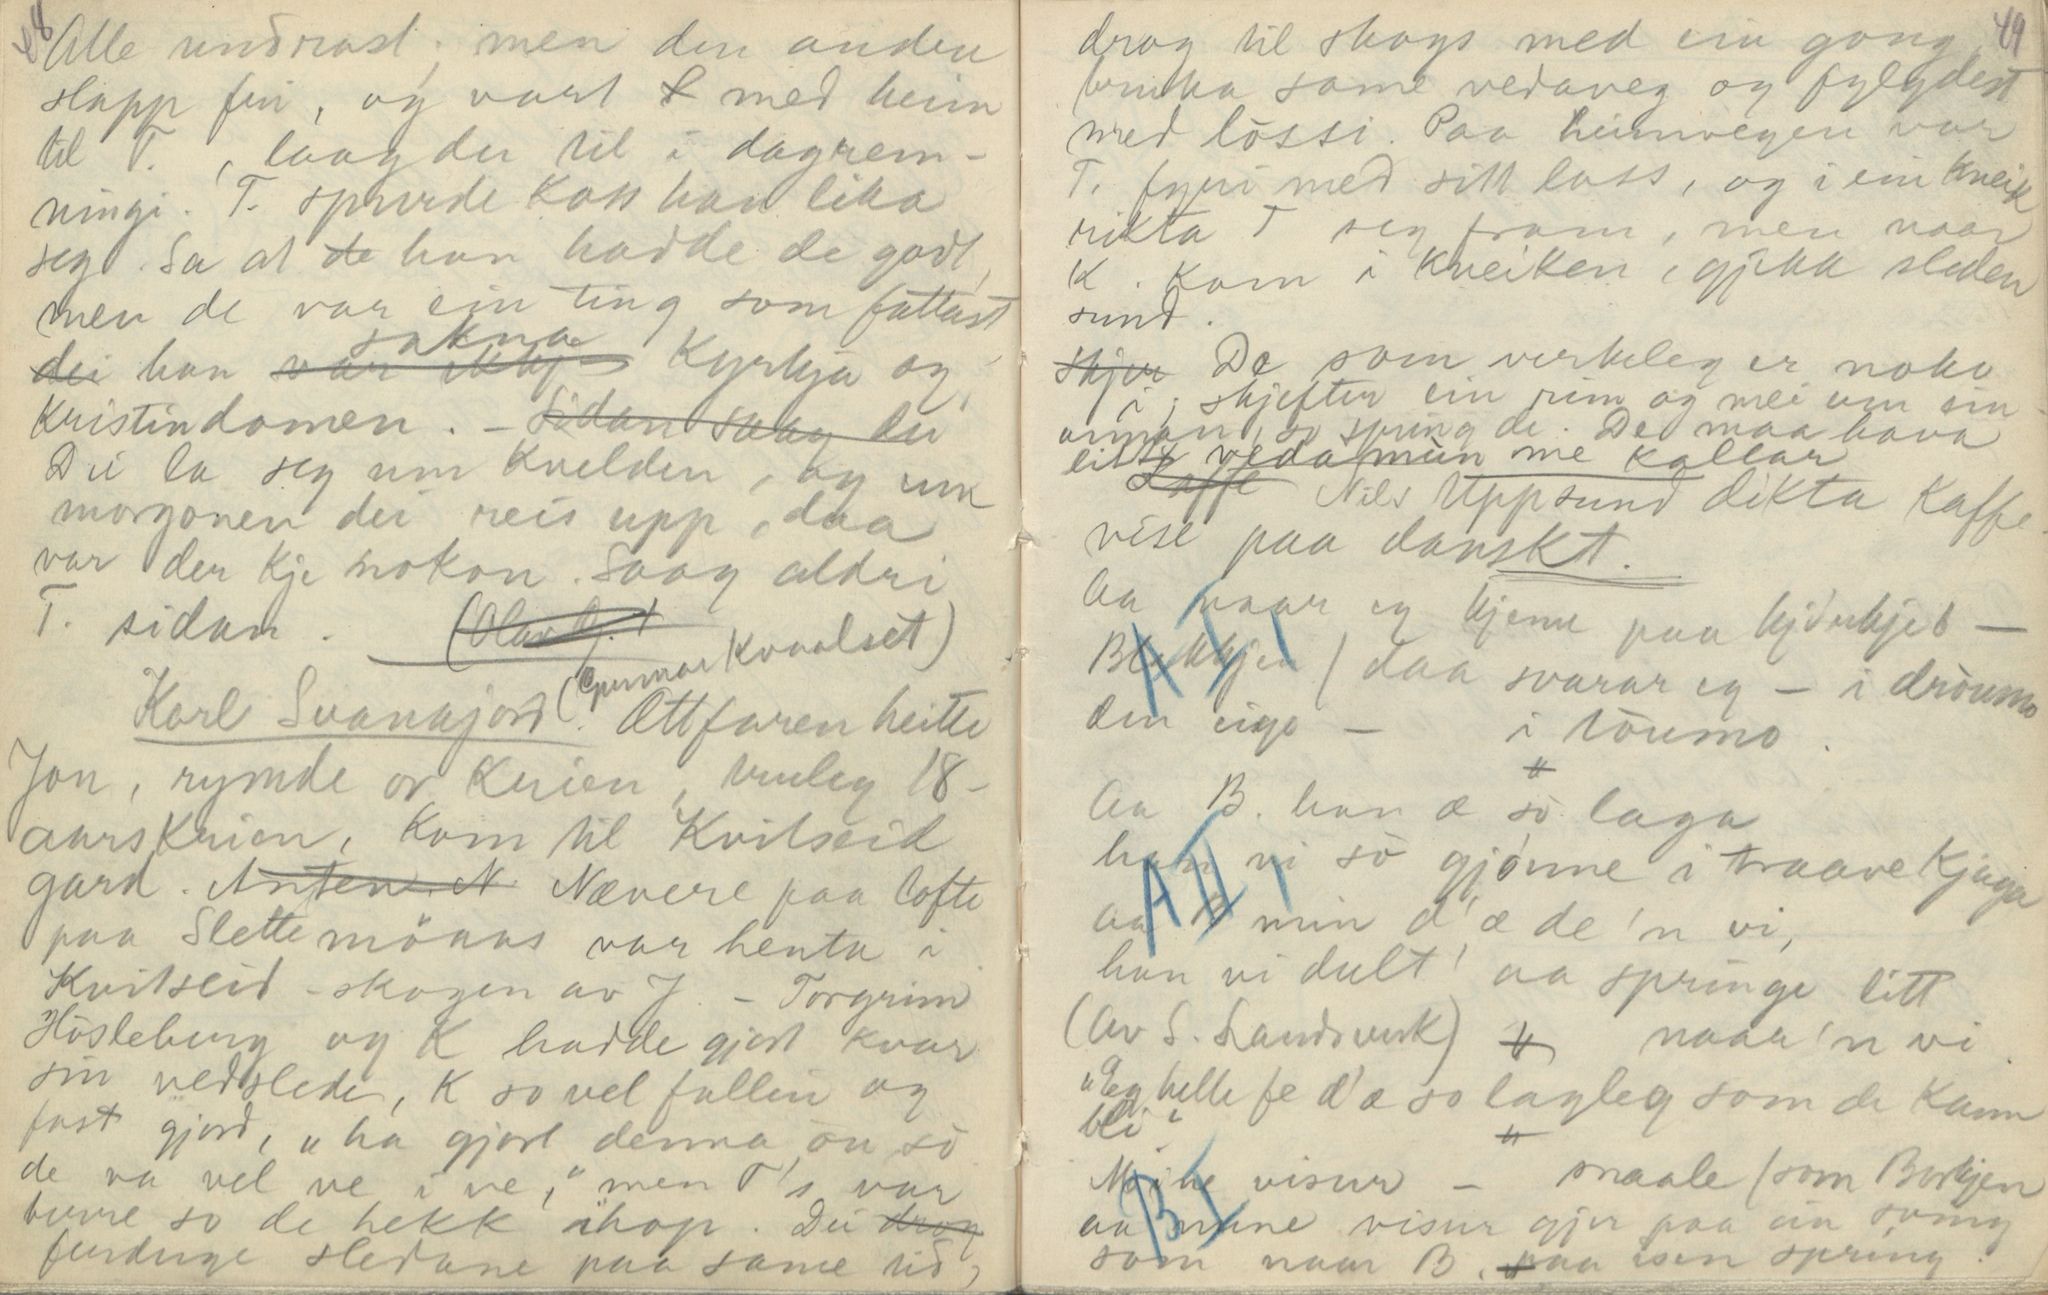 48
Alle undrast, men den anden
slapp fri, og vart med heim
til T., laag der til i dagrem-
ningi. T. spurde koss han lika
seg. Sa at de han hadde de godt,
men de var ein ting som fattast
sakna
dei han var ikkje Kyrkja og
Kristindomen. - Sidan saag dei
Dei la seg um kvelden, og um
morgonen dei reis upp, daa
var der kje nokon. Saag aldri
T. sidan. (Olav Gj.)
(Gunnar Kvaalset)
Karl Svanajord. Ættfaren heitte
Jon, rymde or Krien, truleg 18-
aarskrien, kom til Kvitseid
gard. Nævere paa lofte
paa Slettemöaas var henta i
Kvitseid-skogen av J. - Torgrim
Hösleburg og K hadde gjort kvar
sin vedslede, K so vel fallin og
fast gjord, "ha gjort denna òn sò
de va vel ve i ve," men T's var
turre so de hekk ihop. Dei drog
ferduge sledane paa same tid,
49
drog til skogs med ein gong,
bruka same vedaveg og fylgdest
med lòssi. Paa heimvegen var
T. fyri med sitt lass, og i ein kneik
rikta T seg fram, men naar
K. kom i kneiken, gjekk sleden
sund.
skjer De som verkeleg er noko
i, skjefter ein rim og mei um ein-
annan, so spring de. De maa hava
litt vedamùn me kallar
Nils Uppsund dikta Kaffe-
vise paa danskt.
Aa naar eg kjeme paa kjørkjebò -
A I
Blekkjen / daa svarar eg - i dròumo
den eige - i tòumo.
"
Aa B. han æ sò laga
A II
han vi sò gjònne i traave kjaga
aa B min d'æ de'n vi,
han vi dult' aa springe litt
(Av S. Sandsverk) naar'n vi.
"Eg helle fe d'æ so lagleg som de kann
bli"
"
B I
Mine visur - maale (som Borkjen
aa mine visur gjer paa ein song
som naar B. paa isen spring.